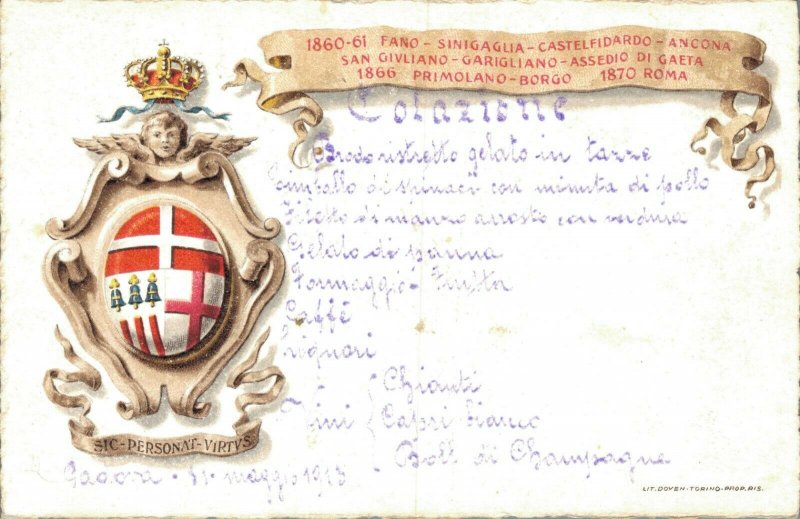 1860-61 FANO - SINIGAGLIA - CASTELFIDARDO - ANCONA
SAN GIVLIANO - GARIGLIANO - ASSEDIO DI GAETA
1866 PRIMOLANO - BORGO 1870 ROMA
Colazione
Brodo ristretto gelato in tazze
Timballo di spinaci con minuta di pollo
Filetto di manzo arrosto con verdura
Gelato di panna
Formaggio - Frutta
Caffè
Liquori
Vini { Chianti
Capri bianco
Boll di Champagne
SIC - PERSONAT - VIRTVS
31 maggio 1913
LIT. DOYEN - TORINO - PROP. RIS.